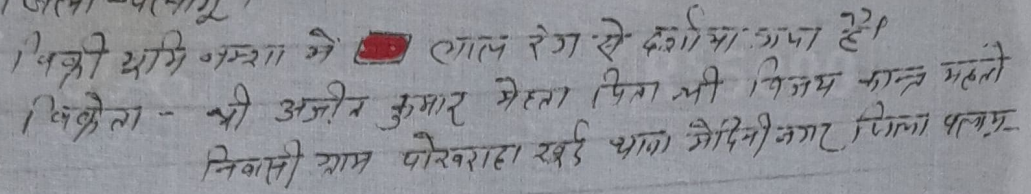 जिला - पलामू
विक्री भूमि नक्शा में लाल रंग से दर्शाया गया है।
विक्रेता - श्री अजीत कुमार मेहता पिता श्री विजय कान्त महतो
निवासी ग्राम पोखराहा खुर्द थाना मेदिनीनगर जिला पलामू